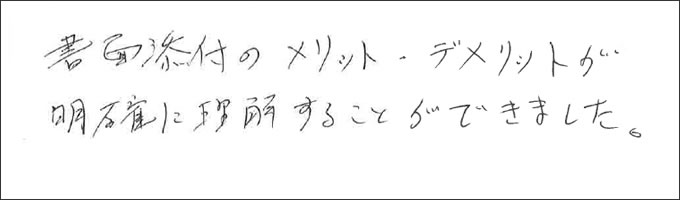 書面添付のメリット・デメリットが
明確に理解することができました。